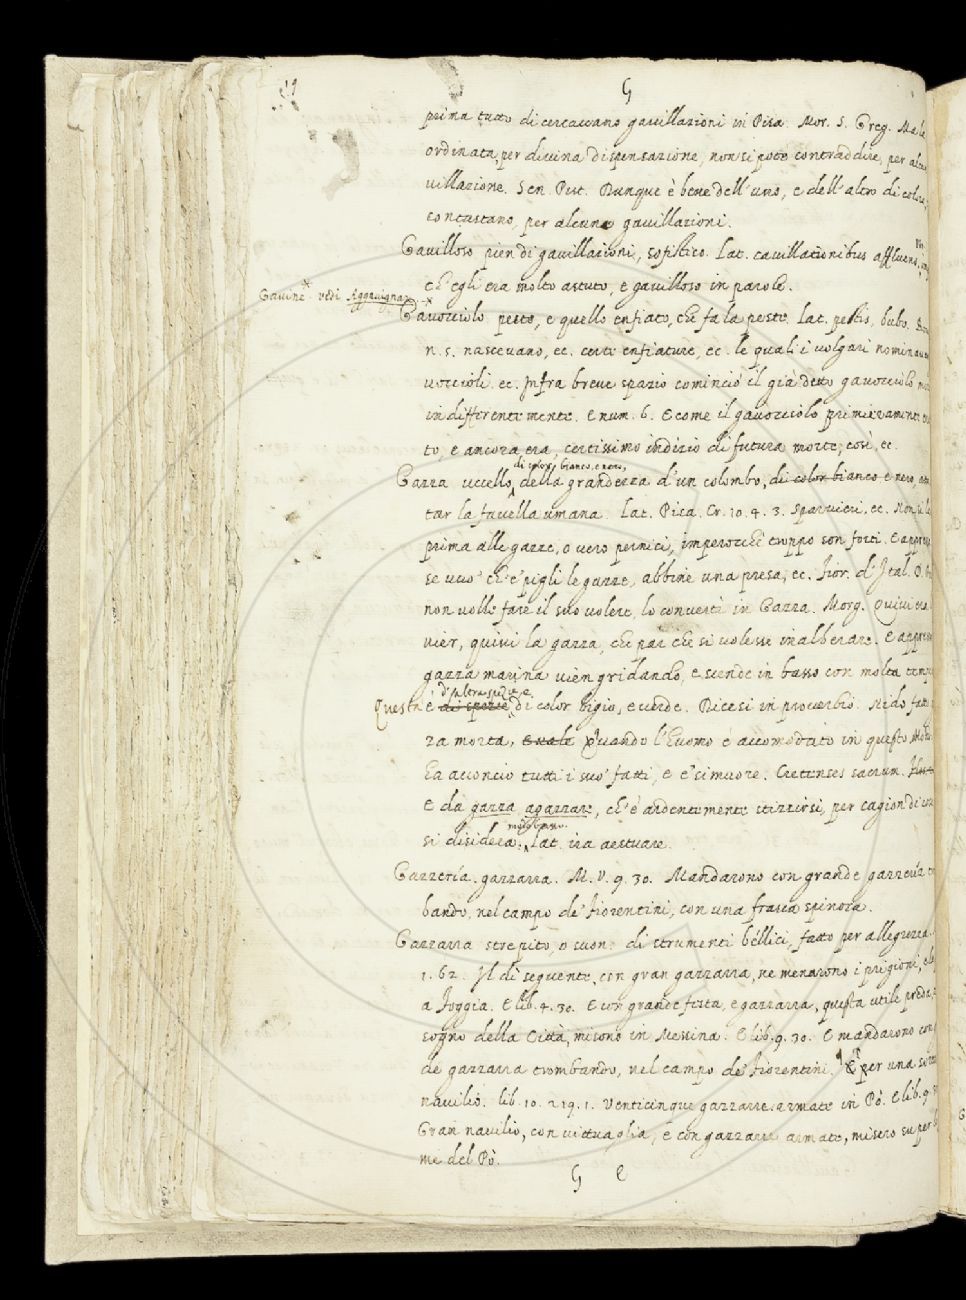 G
prima tutto di cercavano gavillazioni in Pisa. Mor. S. Greg. Male
ordinata, per divina dispensazione, non si pote contraddire, per alcu
villazione. Sen. Pist. Dunque è bene dell'uno, e dell'altro di coloro,
contastano, per alcune gavillazioni.
Gavilloso pien di gavillazioni, sofistico. Lat. cavillationibus affluens.
ch'egli era molto astuto, e gavilloso in parole.
Gavine vedi Aggavignare.
Gavocciolo peste, e quello enfiato, che fa la peste. Lat. pestis, bubo.
n. 5. nascevano, ec. certe enfiature, ec. le quali i volgari nominava
voccioli. ec. Infra breve spazio cominciò il già detto gavocciolo
indifferentemente. E num. 6. E come il gavocciolo primieramente
to, e ancora era, certissimo indizio di futura morte, così, ec.
di color bianco, e nero,
Gazza uccello, della grandezza d'un colombo, di color bianco e nero,
tar la favella umana. Lat. Pica. Cr. 10. 4. 3. Sparvieri, ec. Non si
prima alle gazze, o vero pernici, imperocchè troppo son forti. E appre
se vuo' ch'e' pigli le gazze, abbine una presa, ec. Fior. d'Ital. D.
non volle fare il suo volere, lo convertì in Gazza. Morg. Quivi era
vier, quivi la gazza, che par che si volesse inalberare. E appre
gazza marina vien gridando, e scende in basso con molta temp
d'altra spezie, e
Questa è di spezie di color bigio, e verde. Dicesi in proverbio. Nido fatto
za morta, e vale Quando l'Huomo è accomodato in questo Mo
ha acconcio tutti i suo' fatti, e e' si muore. Cretenses sacrum.
E da gazza agazzare, ch'è ardentemente stizzirsi, per cagion di
modo basso.
si desidera. Lat. ira aestuare.
Gazzeria. gazzarra. M. V. 9. 30. Mandarono con grande gazzeria
bando, nel campo de' Fiorentini, con una frasca spinosa.
Gazzarra strepito, o suon di strumenti bellici, fatto per allegrezza.
1. 62. Il dì seguente, con gran gazzarra, ne menarono i prigioni,
a Foggia. E lib. 4. 30. E con grande festa, e gazzarra, questa utile preda,
sogno della Città, misono in Messina. E lib. 9. 30. E mandarono con
de gazzarra trombando, nel campo de' Fiorentini. E per una sorta
navilio. lib. 10. 219. 1. Venticinque gazzarre armate in Pò. E lib. 9.
Gran navilio, con vittuaglia, e con gazzarre armate, misero su per
me del Pò.
G E